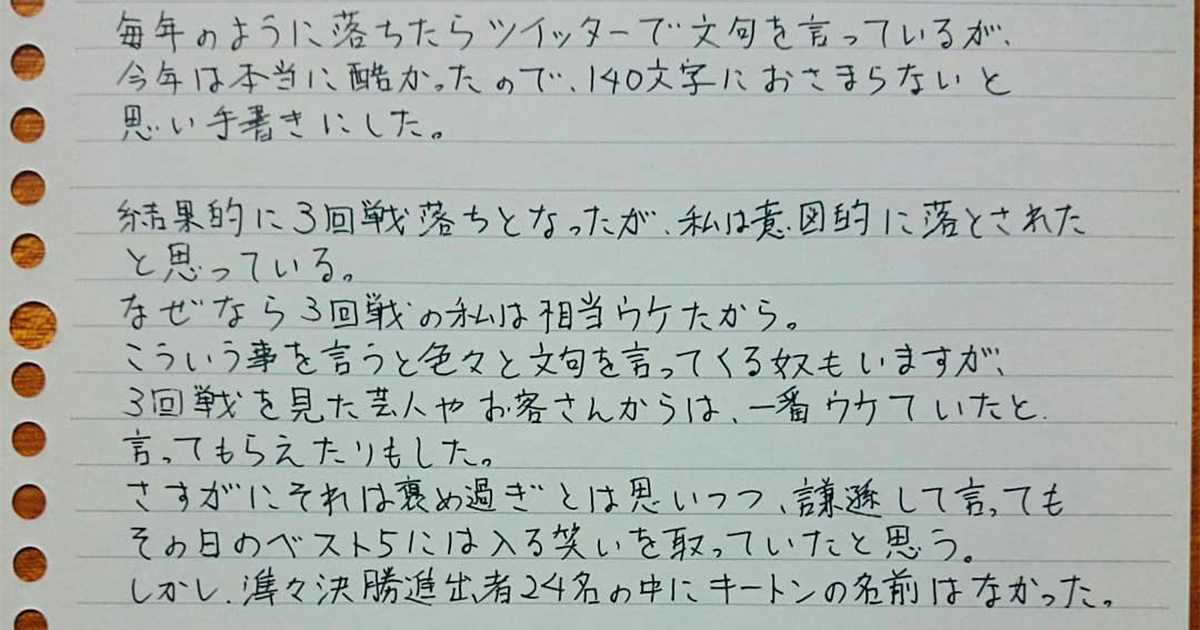 毎年のように落ちたらツイッターで文句を言っているが、
今年は本当に酷かったので、140文字におさまらないと
思い手書きにした。
結果的に3回戦落ちとなったが、私は意図的に落とされた
と思っている。
なぜなら3回戦の私は相当ウケたから。
こういう事を言うと色々と文句を言ってくる奴もいますが、
3回戦を見た芸人やお客さんからは、一番ウケていたと
言ってもらえたりもした。
さすがにそれは褒め過ぎとは思いつつ、謙遜して言っても
その日のベスト5には入る笑いを取っていたと思う。
しかし、準々決勝進出者24名の中にキートンの名前はなかった。